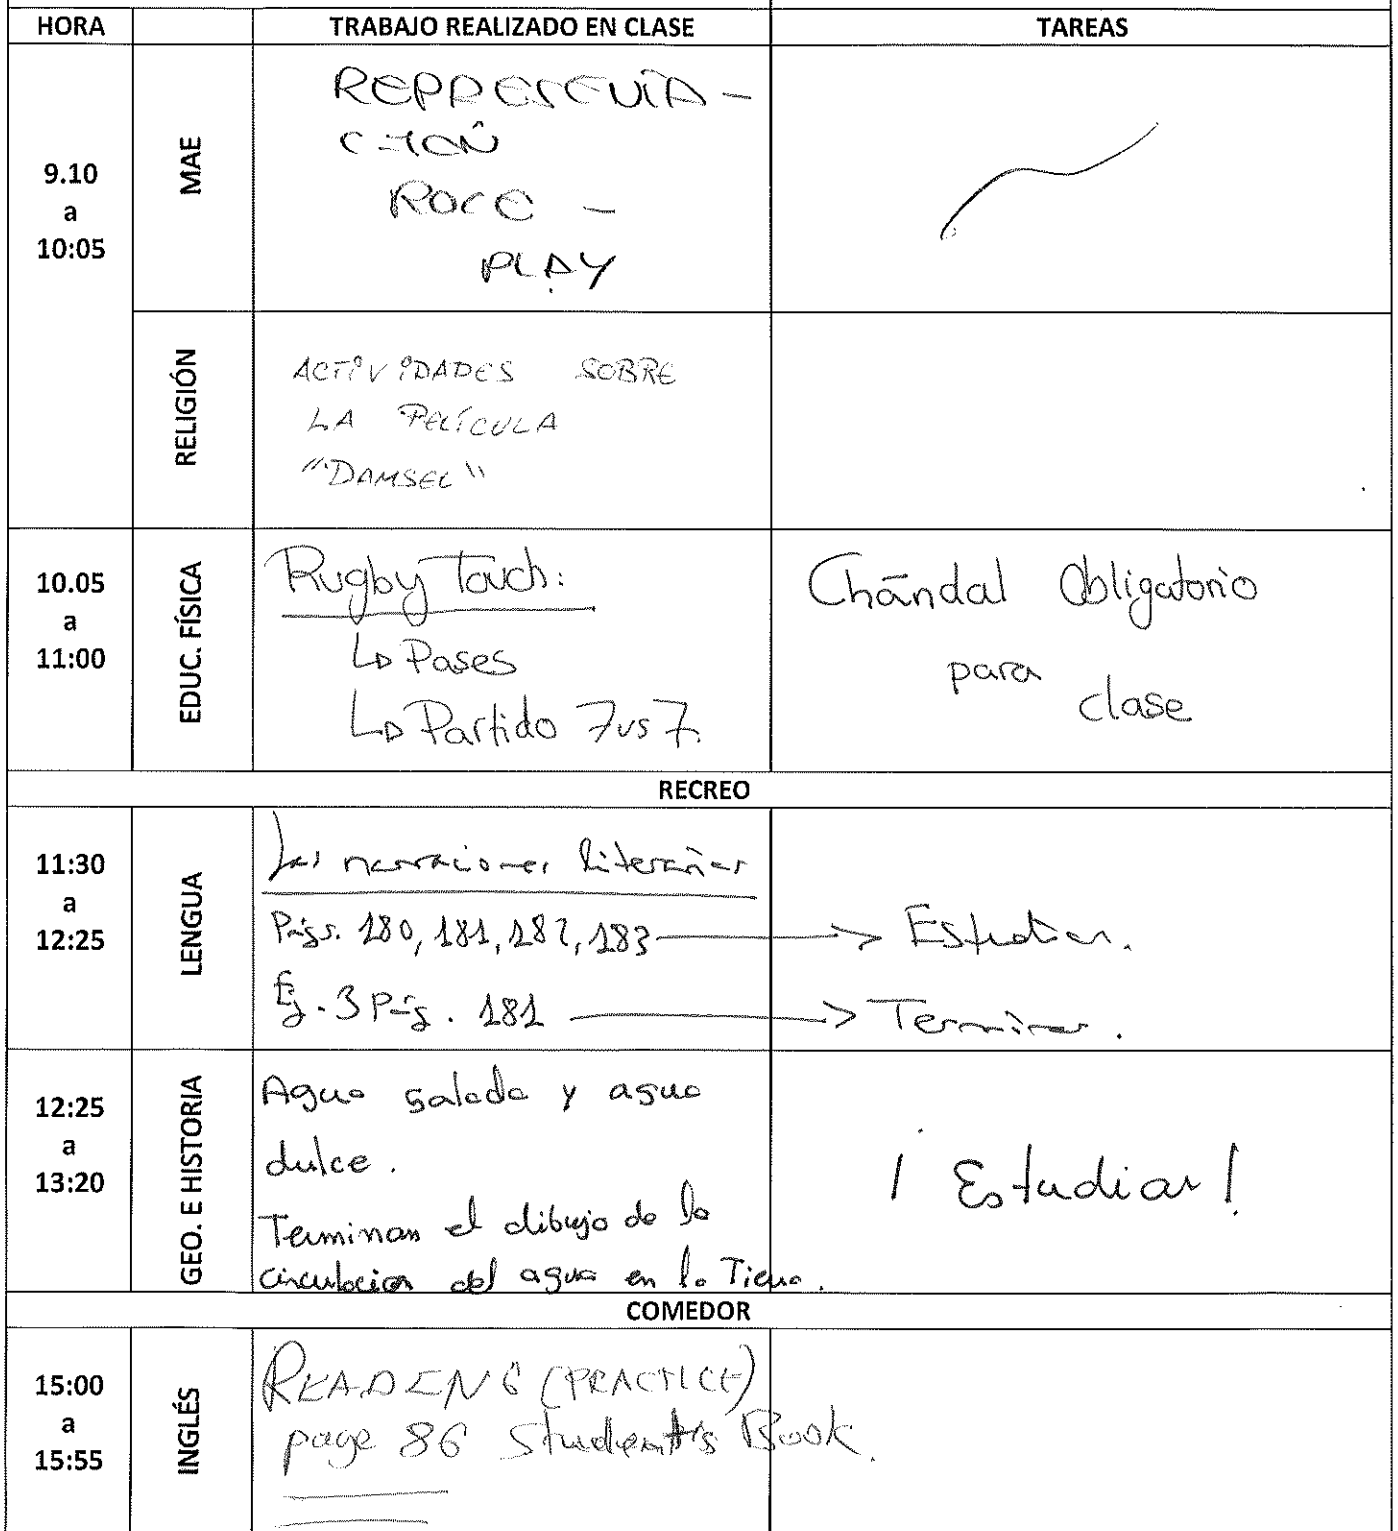 HORA TRABAJO REALIZADO EN CLASE TAREAS
9.10
a
10:05
MAE
REPRESENTA-
CIÓN
ROLE -
PLAY
RELIGIÓN
ACTIVIDADES SOBRE
LA PELÍCULA
"DAMSEL"
10.05
a
11:00
EDUC. FÍSICA
Rugby Touch:
↳ Pases
↳ Partido 7 vs 7.
Chándal Obligatorio
para
clase
RECREO
11:30
a
12:25
LENGUA
Las narraciones literarias
Págs. 180, 181, 182, 183 → Estudiar.
Ej. 3 Pág. 181 → Terminar.
12:25
a
13:20
GEO. E HISTORIA
Agua salada y agua
dulce.
Terminan el dibujo de la
circulación del agua en la Tierra.
¡Estudiar!
COMEDOR
15:00
a
15:55
INGLÉS
READING (PRACTICE)
page 86 Student's Book.